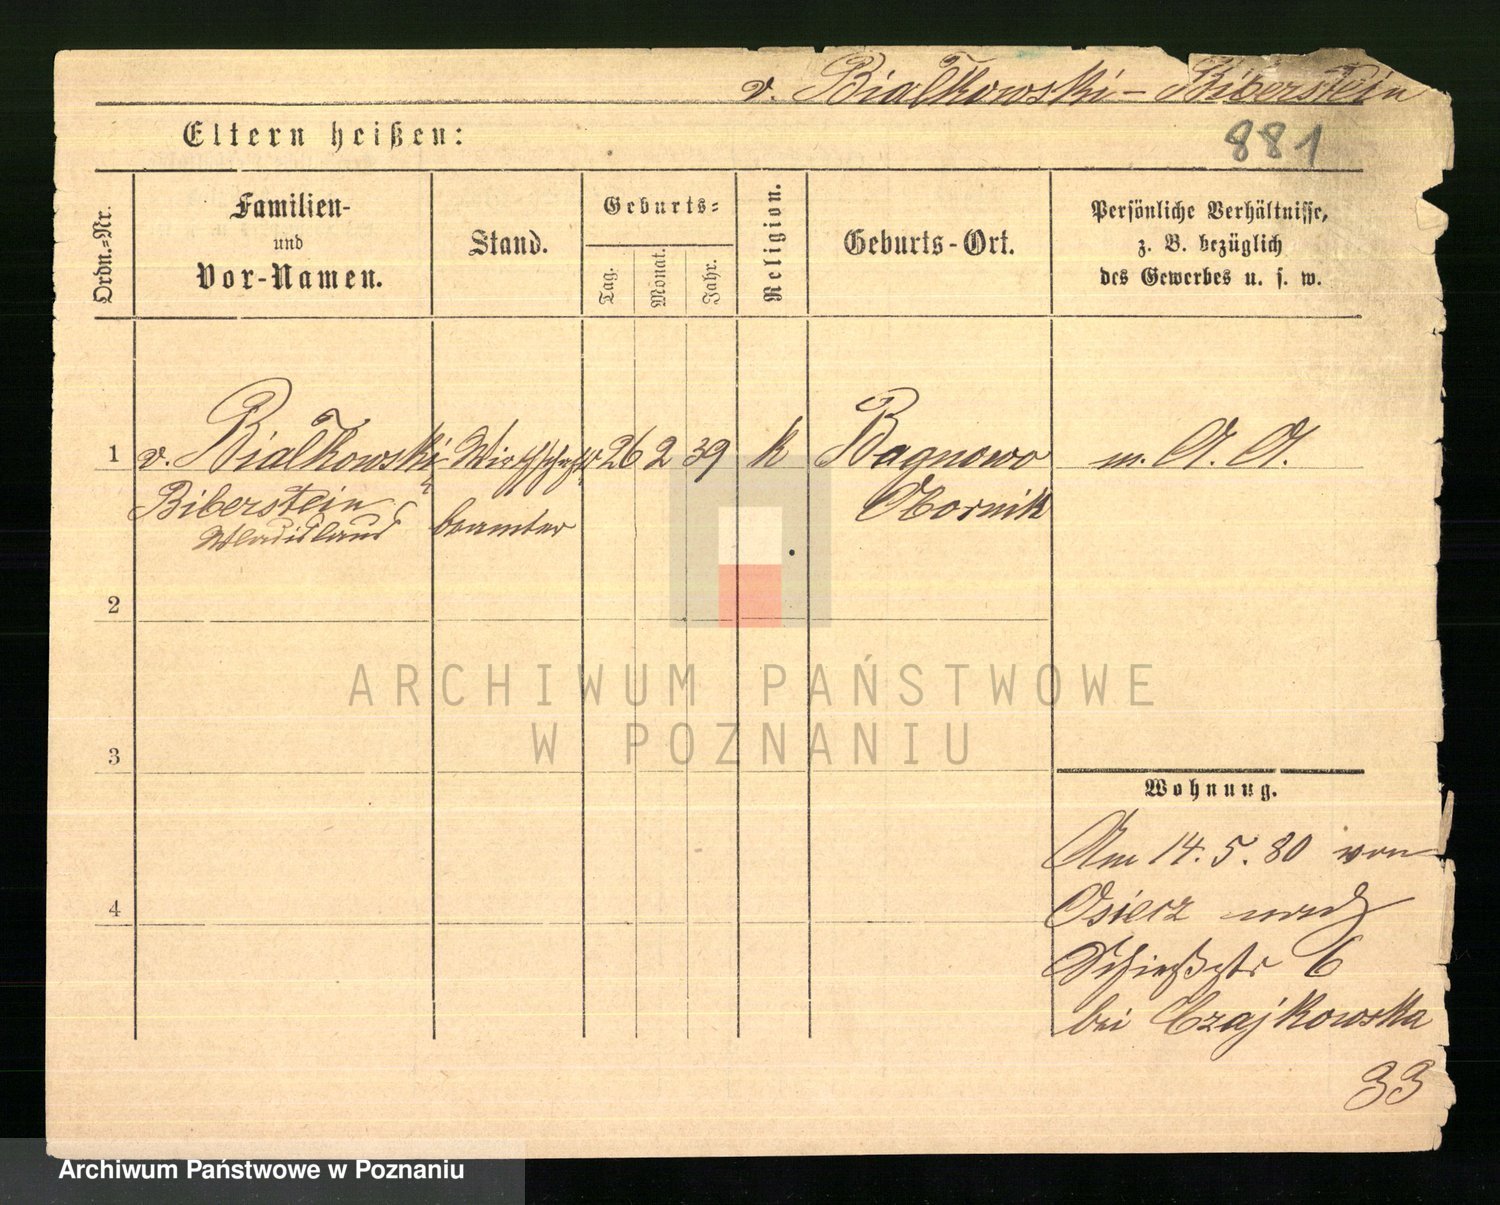 v. Bialkowski-Biberstein
Eltern heißen:
881
Ordn.-Nr.
Familien-
und
Vor-Namen.
Stand.
Geburts-
Tag.
Monat.
Jahr.
Religion.
Geburts-Ort.
Persönliche Verhältnisse,
z. B. bezüglich
des Gewerbes u. s. w.
1 v. Bialkowski- Wirthschafts 26 2 39 k Bagnowo m. A. A.
Biberstein beamter Obornik
Wladislaus
2
3
4
Wohnung.
Am 14. 5. 80 von
Osiecz nach
Schießstr 6
bei Czajkowska
33
ARCHIWUM PAŃSTWOWE
W POZNANIU
Archiwum Państwowe w Poznaniu